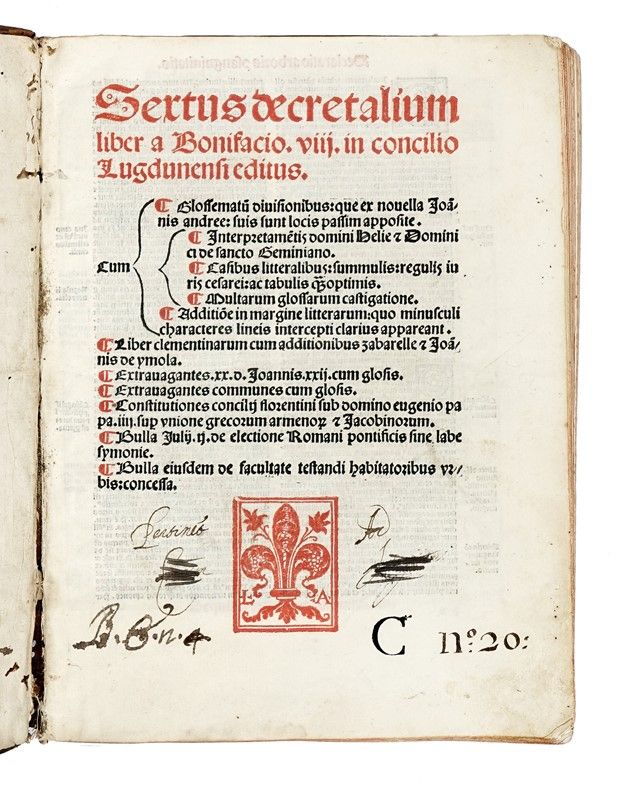 Sextus decretalium
liber a Bonifacio. viij. in concilio
Lugdunensi editus.
Cum
¶ Glossematū diuisionibus: que ex nouella Joā/
nis andree: suis sunt locis passim apposite.
¶ Interpretamētis domini Helie ⁊ Domini
ci de sancto Geminiano.
¶ Casibus litteralibus: summulis: regulis iu
ris cesarei: ac tabulis qꝫ optimis.
¶ Multarum glossarum castigatione.
¶ Additiōe in margine litterarum: quo minusculi
characteres lineis intercepti clarius appareant.
¶ Liber clementinarum cum additionibus zabarelle ⁊ Joā/
nis de ymola.
¶ Extrauagantes. xx. d. Joannis. xxij. cum glosis.
¶ Extrauagantes communes cum glosis.
¶ Constitutiones concilij florentini sub domino eugenio pa
pa. iiij. sup vnione grecorum armenoꝝ ⁊ Jacobinorum.
¶ Bulla Julij. ij. de electione Romani pontificis sine labe
symonie.
¶ Bulla eiusdem de facultate testandi habitatoribus vr/
bis: concessa.
L A
C nº. 20: